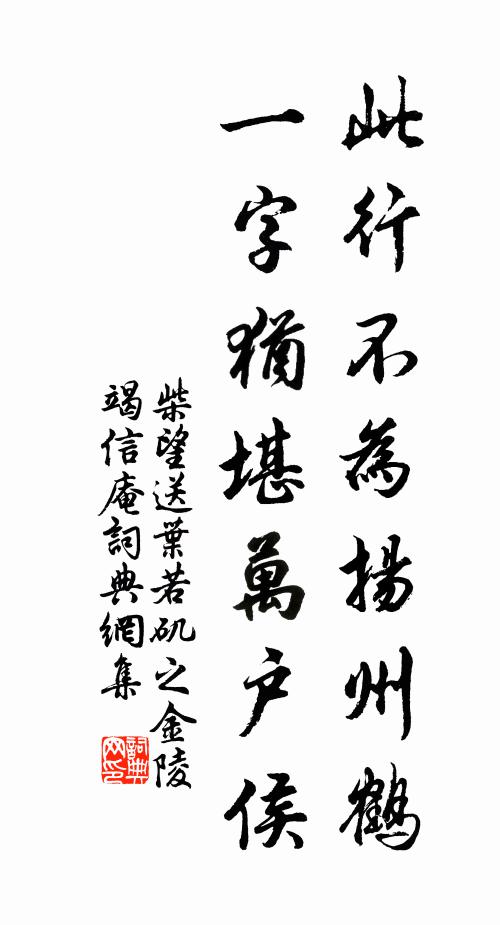 此行不為揚州鶴
一字猶堪萬戶侯
柴望送葉若矶之金陵
竭信庵詞典網集
詞典網印